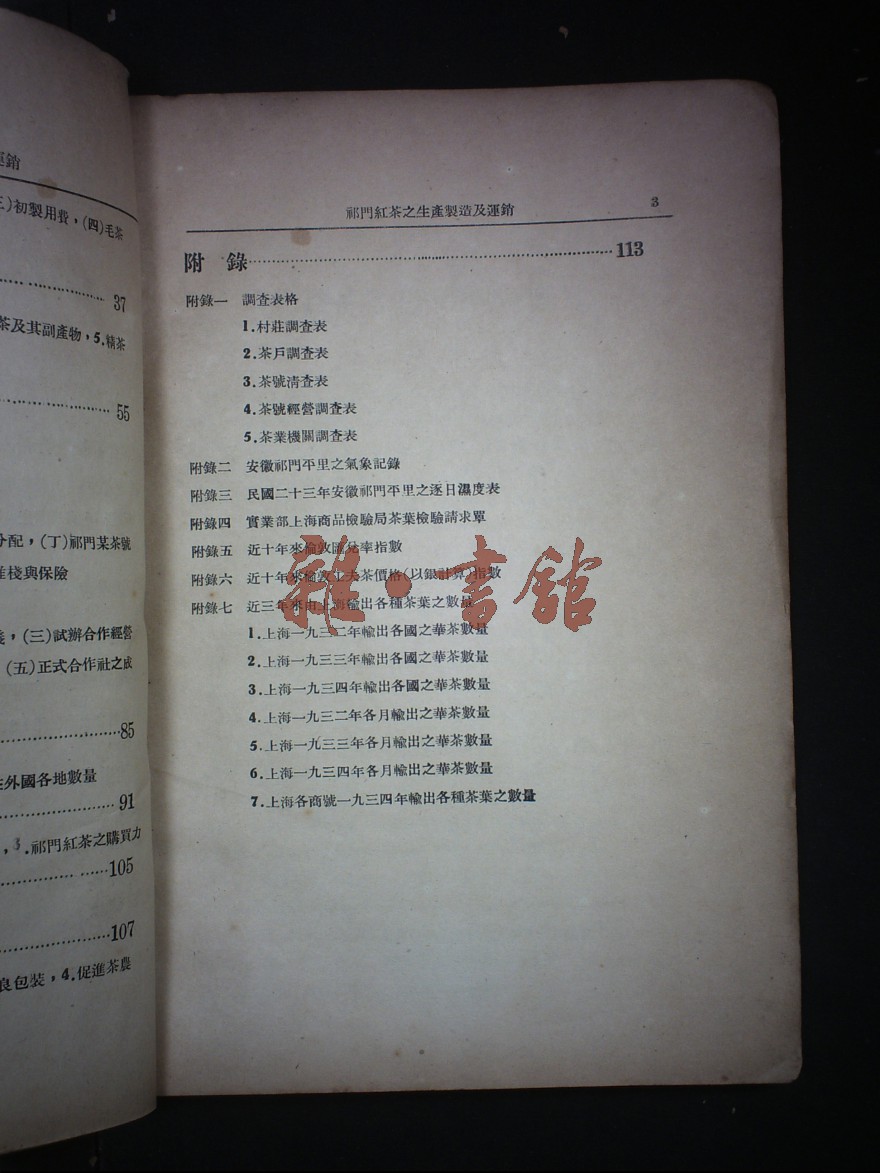 運銷
三)初製用費，(四)毛茶
37
茶及其副產物，5.精茶
55
分配，(丁)祁門某茶號
堆棧與保險
，(三)試辦合作經營
(五)正式合作社之成
85
外國各地數量
91
，3.祁門紅茶之購買力
105
107
良包裝，4.促進茶農
祁門紅茶之生產製造及運銷 3
附 錄 113
附錄一 調查表格
1.村莊調查表
2.茶戶調查表
3.茶號清查表
4.茶號經營調查表
5.茶業機關調查表
附錄二 安徽祁門平里之氣象記錄
附錄三 民國二十三年安徽祁門平里之逐日濕度表
附錄四 實業部上海商品檢驗局茶葉檢驗請求單
附錄五 近十年來倫敦匯兌率指數
附錄六 近十年來倫敦工夫茶價格(以銀計算)指數
附錄七 近三年來由上海輸出各種茶葉之數量
1.上海一九三二年輸出各國之華茶數量
2.上海一九三三年輸出各國之華茶數量
3.上海一九三四年輸出各國之華茶數量
4.上海一九三二年各月輸出之華茶數量
5.上海一九三三年各月輸出之華茶數量
6.上海一九三四年各月輸出之華茶數量
7.上海各商號一九三四年輸出各種茶葉之數量
雜·書館